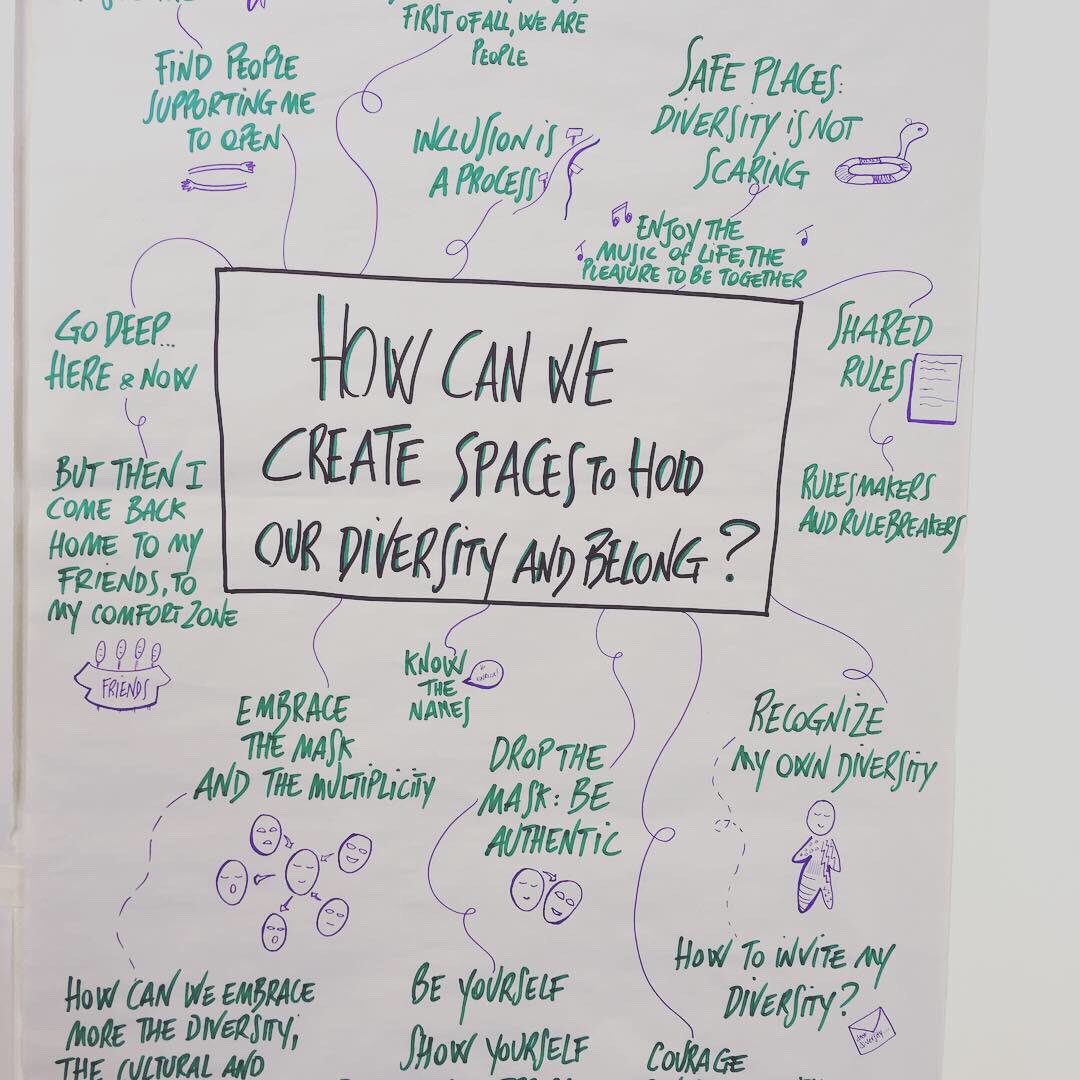 FIRST OF ALL, WE ARE
PEOPLE
FIND PEOPLE
SUPPORTING ME
TO OPEN
INCLUSION IS
A PROCESS
SAFE PLACES:
DIVERSITY IS NOT
SCARING
ENJOY THE
MUSIC OF LIFE, THE
PLEASURE TO BE TOGETHER
GO DEEP...
HERE & NOW
BUT THEN I
COME BACK
HOME TO MY
FRIENDS, TO
MY COMFORT ZONE
FRIENDS
HOW CAN WE
CREATE SPACES TO HOLD
OUR DIVERSITY AND BELONG?
SHARED
RULES
RULESMAKERS
AND RULEBREAKERS
EMBRACE
THE MASK
AND THE MULTIPLICITY
KNOW
THE
NAMES
DROP THE
MASK: BE
AUTHENTIC
RECOGNIZE
MY OWN DIVERSITY
HOW CAN WE EMBRACE
MORE THE DIVERSITY,
THE CULTURAL AND
BE YOURSELF
SHOW YOURSELF
HOW TO INVITE MY
DIVERSITY?
COURAGE